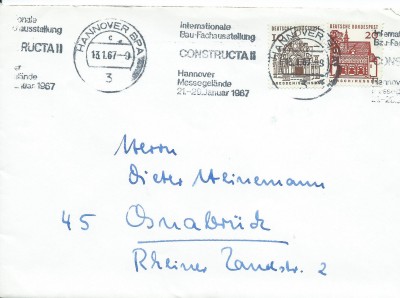 onale
ausstellung
RUCTA II
er
elände
nuar 1967
HANNOVER BPA
c
13.1.67-9
3
Internationale
Bau-Fachausstellung
CONSTRUCTA II
Hannover
Messegelände
21.-29. Januar 1967
DEUTSCHE BUNDESPOST
10
DEUTSCHE BUNDESPOST
20
HANNOVER
.1.67-9
3
Internati
Bau-Fach
CONS
Herrn
Dieter Heinemann
45 Osnabrück
Rheiner Landstr. 2